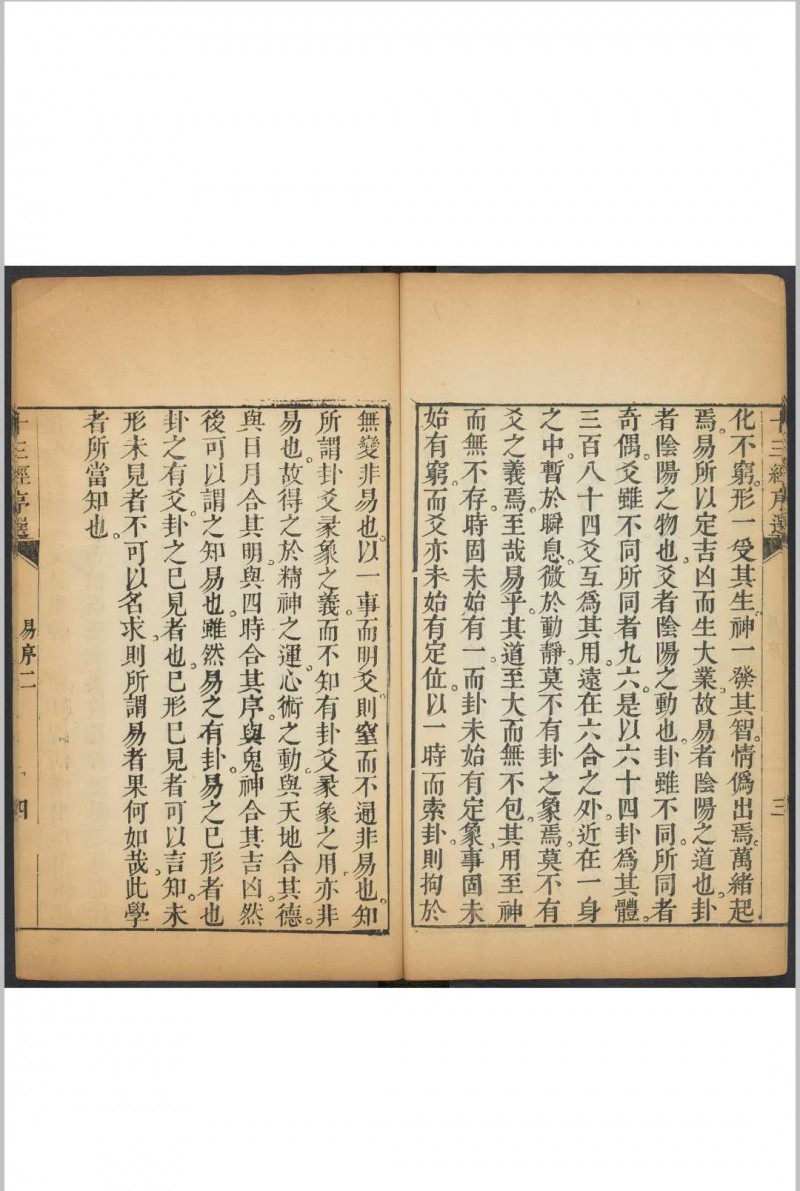 十三經序選 三
化不窮。形一受其生。神一發其智。情僞出焉。萬緒起
焉。易所以定吉凶而生大業。故易者陰陽之道也。卦
者陰陽之物也。爻者陰陽之動也。卦雖不同。所同者
奇偶。爻雖不同所同者九六。是以六十四卦爲其體。
三百八十四爻互爲其用。遠在六合之外。近在一身
之中。暫於瞬息。微於動靜。莫不有卦之象焉。莫不有
爻之義焉。至哉易乎。其道至大而無不包。其用至神
而無不存。時固未始有一。而卦未始有定象。事固未
始有窮。而爻亦未始有定位。以一時而索卦。則拘於
無變。非易也。以一事而明爻。則窒而不通。非易也。知
所謂卦爻彖象之義。而不知有卦爻彖象之用。亦非
易也。故得之於精神之運。心術之動。與天地合其德。
與日月合其明。與四時合其序。與鬼神合其吉凶。然
後可以謂之知易也。雖然易之有卦。易之已形者也
卦之有爻。卦之已見者也。已形已見者可以言知。未
形未見者不可以名求。則所謂易者果何如哉。此學
者所當知也。
十三經序選 易序二 四